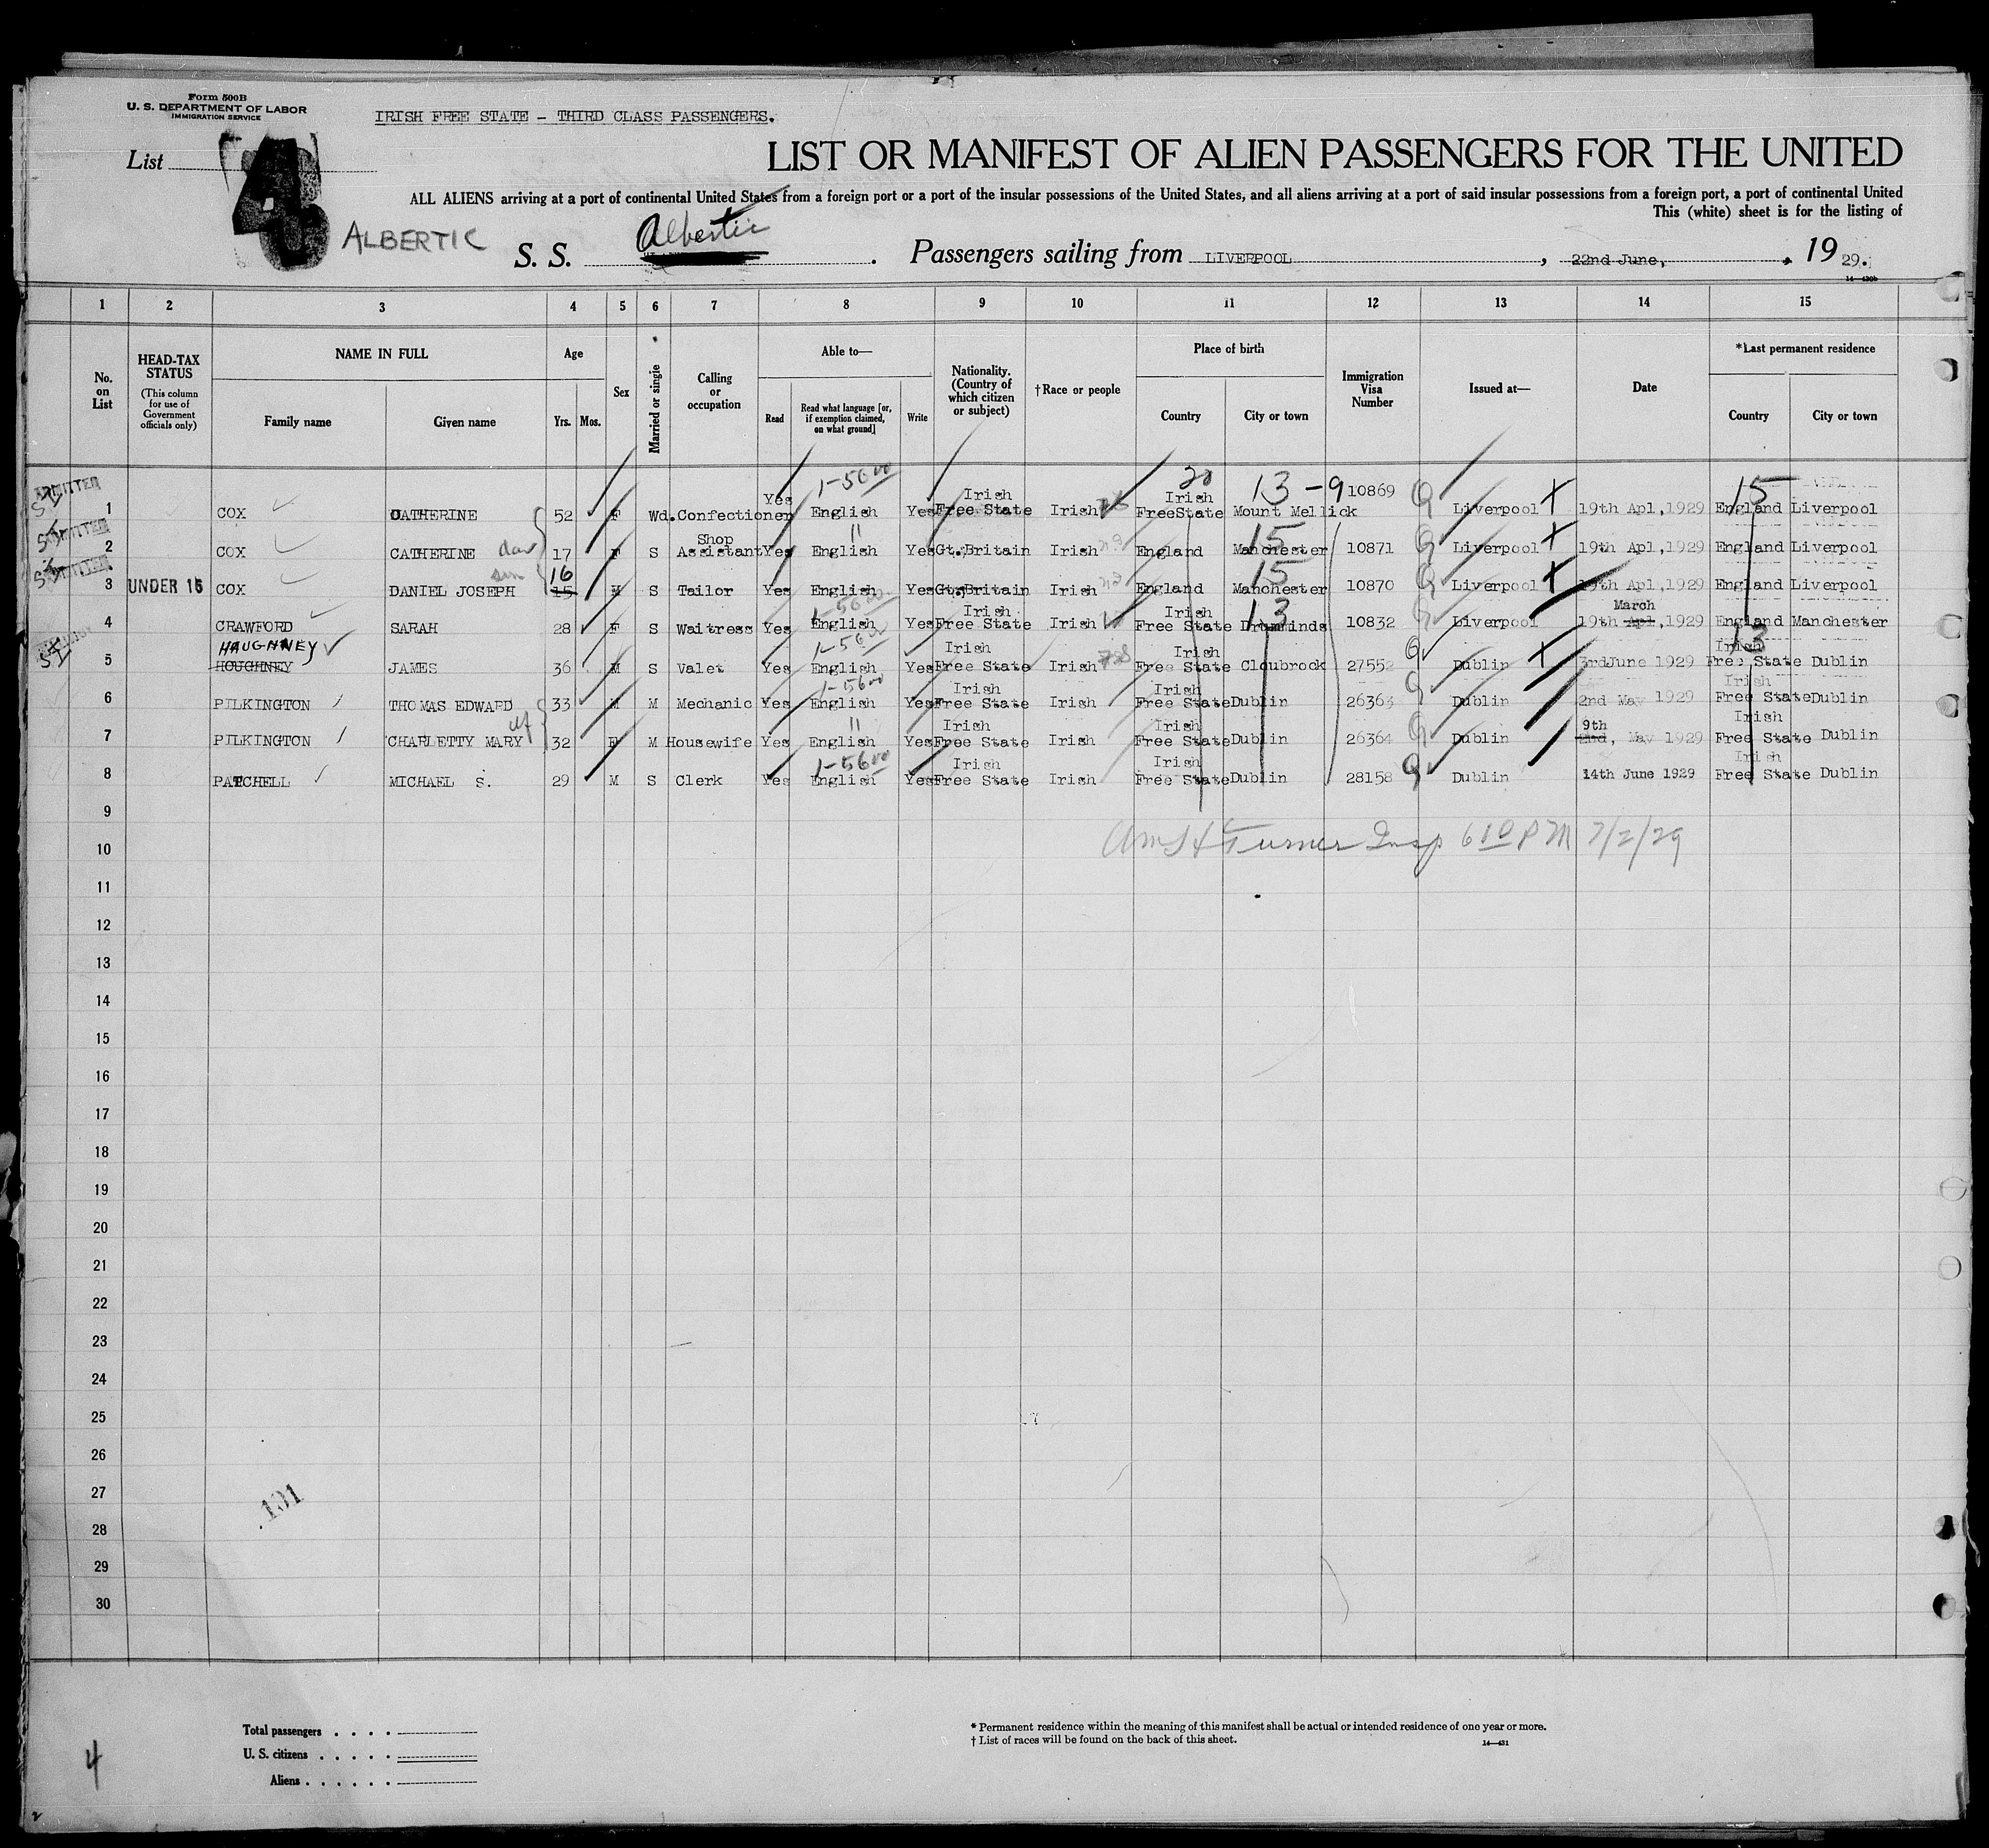 Form 500B
U. S. DEPARTMENT OF LABOR
IMMIGRATION SERVICE
IRISH FREE STATE - THIRD CLASS PASSENGERS.
List 4
LIST OR MANIFEST OF ALIEN PASSENGERS FOR THE UNITED
ALL ALIENS arriving at a port of continental United States from a foreign port or a port of the insular possessions of the United States, and all aliens arriving at a port of said insular possessions from a foreign port, a port of continental United
This (white) sheet is for the listing of
ALBERTIC S. S. Albertic . Passengers sailing from LIVERPOOL , 22nd June, , 19 29.
14—430b
1 2 3 4 5 6 7 8 9 10 11 12 13 14 15
No. on List
HEAD-TAX STATUS
(This column for use of Government officials only)
NAME IN FULL
Family name Given name
Age
Yrs. Mos.
Sex
Married or single
Calling or occupation
Able to—
Read Read what language [or, if exemption claimed, on what ground] Write
Nationality. (Country of which citizen or subject)
†Race or people
Place of birth
Country City or town
Immigration Visa Number
Issued at—
Date
*Last permanent residence
Country City or town
1-56 00 20 13-9 15
ADMITTED SI 1 COX CATHERINE 52 F Wd. Confectioner Yes English Yes Irish Free State Irish Irish FreeState Mount Mellick 10869 Q Liverpool X 19th Apl,1929 England Liverpool
" 15
ADMITTED SI 2 COX CATHERINE dau 17 F S Shop Assistant Yes English Yes Gt.Britain Irish England Manchester 10871 Q Liverpool X 19th Apl,1929 England Liverpool
16 15
ADMITTED SI 3 UNDER 16 COX DANIEL JOSEPH son 15 M S Tailor Yes English Yes Gt.Britain Irish England Manchester 10870 Q Liverpool X 19th Apl,1929 England Liverpool
1-56 00 13
4 CRAWFORD SARAH 28 F S Waitress Yes English Yes Irish Free State Irish Irish Free State Drumminds 10832 Q Liverpool 19th March Apl,1929 England Manchester
HAUGHNEY 1-56 00 13
SI 5 HOUGHNEY JAMES 36 M S Valet Yes English Yes Irish Free State Irish Irish Free State Cloubrock 27552 Q Dublin X 3rdJune 1929 Irish Free State Dublin
1-56 00
6 PILKINGTON THOMAS EDWARD 33 M M Mechanic Yes English Yes Irish Free State Irish Irish Free State Dublin 26363 Q Dublin 2nd May 1929 Irish Free State Dublin
"
7 PILKINGTON CHARLETTY MARY wf 32 F M Housewife Yes English Yes Irish Free State Irish Irish Free State Dublin 26364 Q Dublin 9th 2nd, May 1929 Irish Free State Dublin
1-56 00
8 PATCHELL MICHAEL S. 29 M S Clerk Yes English Yes Irish Free State Irish Irish Free State Dublin 28158 Q Dublin 14th June 1929 Irish Free State Dublin
9
Turner Insp 6 10 PM 7/2/29
10
11
12
13
14
15
16
17
18
19
20
21
22
23
24
25
26
27
28
29
30
131
Total passengers
U. S. citizens
Aliens
* Permanent residence within the meaning of this manifest shall be actual or intended residence of one year or more.
† List of races will be found on the back of this sheet.
14—431
4
2